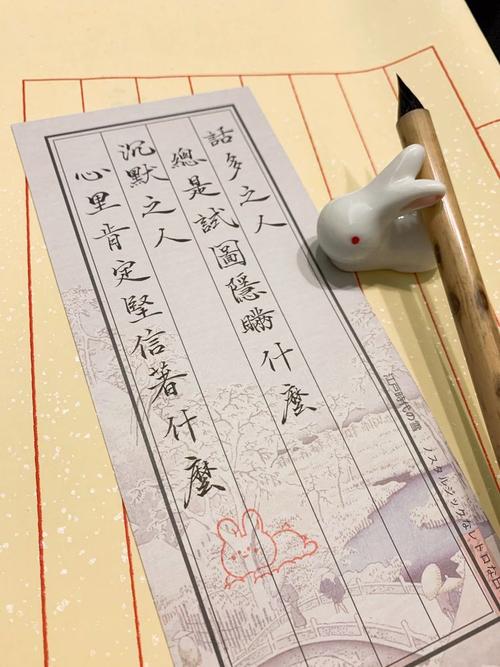 話多之人
總是試圖隱瞞什麼
沉默之人
心里肯定堅信著什麼
江戸時代の雪 ノスタルジックなレトロな日